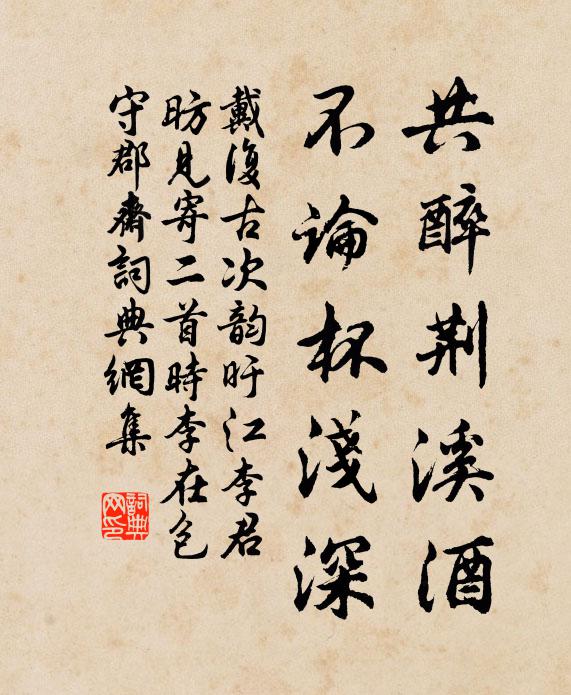 共醉荆溪酒
不論杯淺深
戴復古次韵盱江李君
昉見寄二首時李在包
守郡齋詞典網集
詞典网印